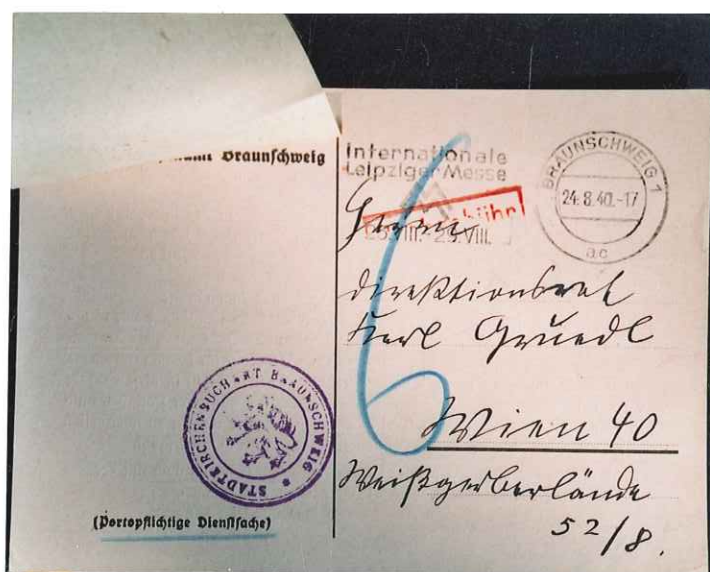 Braunschweig
Internationale
Leipziger Messe
25.VIII.-29.VIII.
BRAUNSCHWEIG 1
24.8.40.-17
ac
Herrn
Direktionsrat
Karl Gruedl
6
Wien 40
Weißgerberlände
52/8.
STADTKIRCHENBUCHAMT BRAUNSCHWEIG
(Portopflichtige Dienstsache)